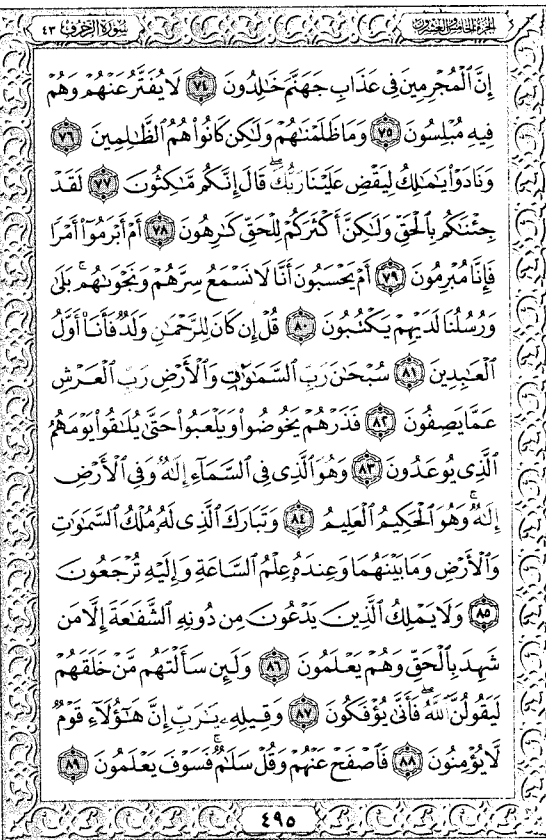 الجزء الخامس والعشرون سورة الزخرف ٤٣
إِنَّ ٱلْمُجْرِمِينَ فِى عَذَابِ جَهَنَّمَ خَٰلِدُونَ ٧٤ لَا يُفَتَّرُ عَنْهُمْ وَهُمْ
فِيهِ مُبْلِسُونَ ٧٥ وَمَا ظَلَمْنَٰهُمْ وَلَٰكِن كَانُوا۟ هُمُ ٱلظَّٰلِمِينَ ٧٦
وَنَادَوْا۟ يَٰمَٰلِكُ لِيَقْضِ عَلَيْنَا رَبُّكَ ۖ قَالَ إِنَّكُم مَّٰكِثُونَ ٧٧ لَقَدْ
جِئْنَٰكُم بِٱلْحَقِّ وَلَٰكِنَّ أَكْثَرَكُمْ لِلْحَقِّ كَٰرِهُونَ ٧٨ أَمْ أَبْرَمُوٓا۟ أَمْرًا
فَإِنَّا مُبْرِمُونَ ٧٩ أَمْ يَحْسَبُونَ أَنَّا لَا نَسْمَعُ سِرَّهُمْ وَنَجْوَىٰهُم ۚ بَلَىٰ
وَرُسُلُنَا لَدَيْهِمْ يَكْتُبُونَ ٨٠ قُلْ إِن كَانَ لِلرَّحْمَٰنِ وَلَدٌ فَأَنَا۠ أَوَّلُ
ٱلْعَٰبِدِينَ ٨١ سُبْحَٰنَ رَبِّ ٱلسَّمَٰوَٰتِ وَٱلْأَرْضِ رَبِّ ٱلْعَرْشِ
عَمَّا يَصِفُونَ ٨٢ فَذَرْهُمْ يَخُوضُوا۟ وَيَلْعَبُوا۟ حَتَّىٰ يُلَٰقُوا۟ يَوْمَهُمُ
ٱلَّذِى يُوعَدُونَ ٨٣ وَهُوَ ٱلَّذِى فِى ٱلسَّمَآءِ إِلَٰهٌ وَفِى ٱلْأَرْضِ
إِلَٰهٌ ۚ وَهُوَ ٱلْحَكِيمُ ٱلْعَلِيمُ ٨٤ وَتَبَارَكَ ٱلَّذِى لَهُۥ مُلْكُ ٱلسَّمَٰوَٰتِ
وَٱلْأَرْضِ وَمَا بَيْنَهُمَا وَعِندَهُۥ عِلْمُ ٱلسَّاعَةِ وَإِلَيْهِ تُرْجَعُونَ
٨٥ وَلَا يَمْلِكُ ٱلَّذِينَ يَدْعُونَ مِن دُونِهِ ٱلشَّفَٰعَةَ إِلَّا مَن
شَهِدَ بِٱلْحَقِّ وَهُمْ يَعْلَمُونَ ٨٦ وَلَئِن سَأَلْتَهُم مَّنْ خَلَقَهُمْ
لَيَقُولُنَّ ٱللَّهُ ۖ فَأَنَّىٰ يُؤْفَكُونَ ٨٧ وَقِيلِهِۦ يَٰرَبِّ إِنَّ هَٰٓؤُلَآءِ قَوْمٌ
لَّا يُؤْمِنُونَ ٨٨ فَٱصْفَحْ عَنْهُمْ وَقُلْ سَلَٰمٌ ۚ فَسَوْفَ يَعْلَمُونَ ٨٩
٤٩٥